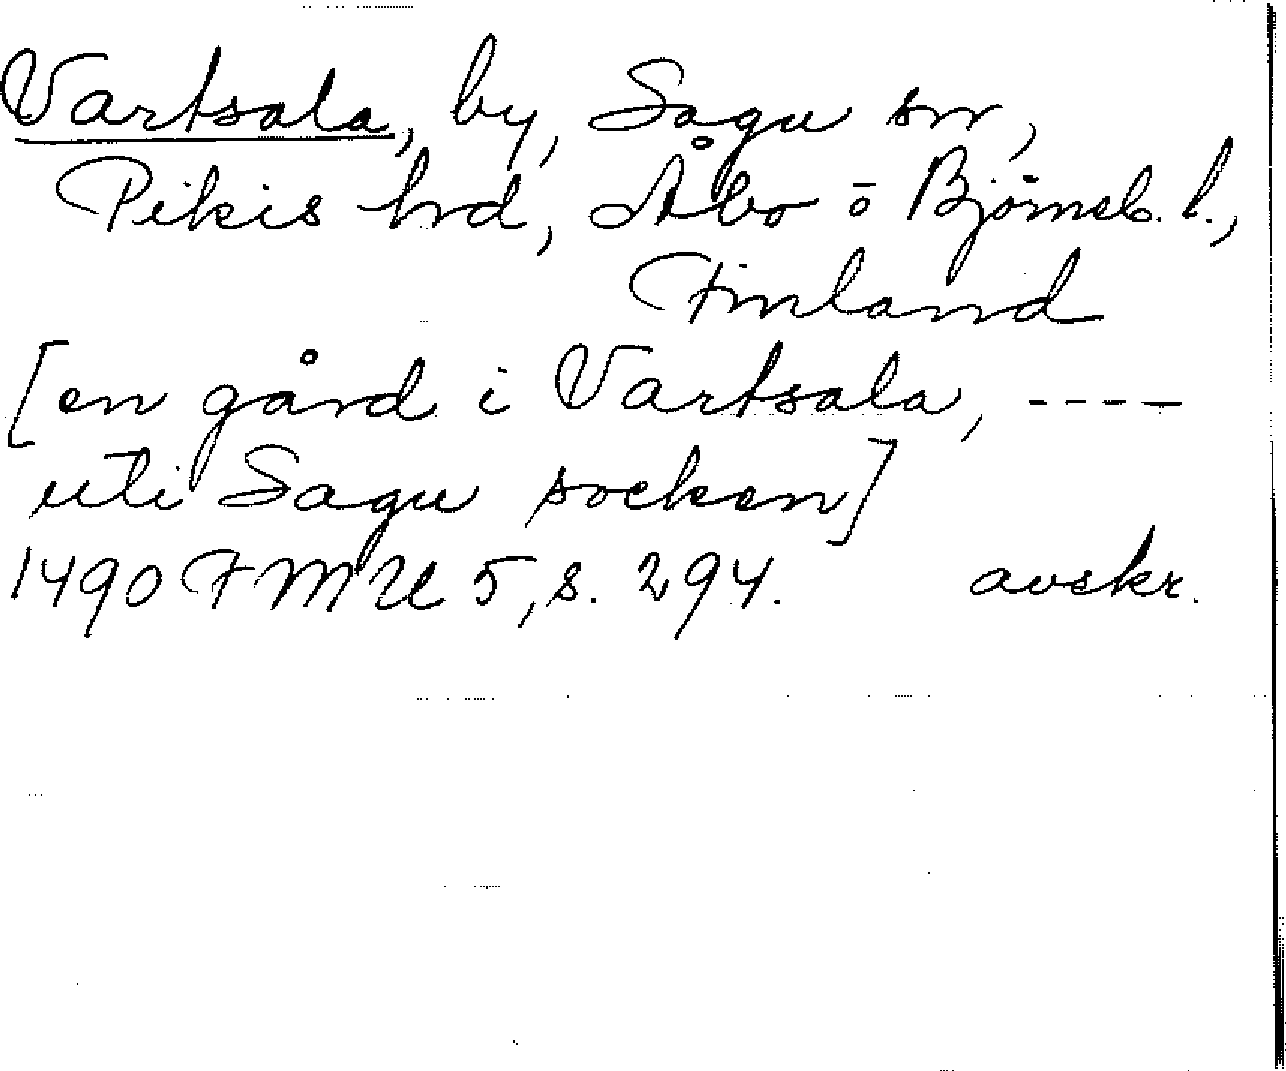 Vartsala, by, Sagu sn,
Pikis hrd, Åbo o Björneb. l.,
Finland
[en gård i Vartsala, ----
uti Sagu socken]
1490 FMU 5, s. 294. avskr.